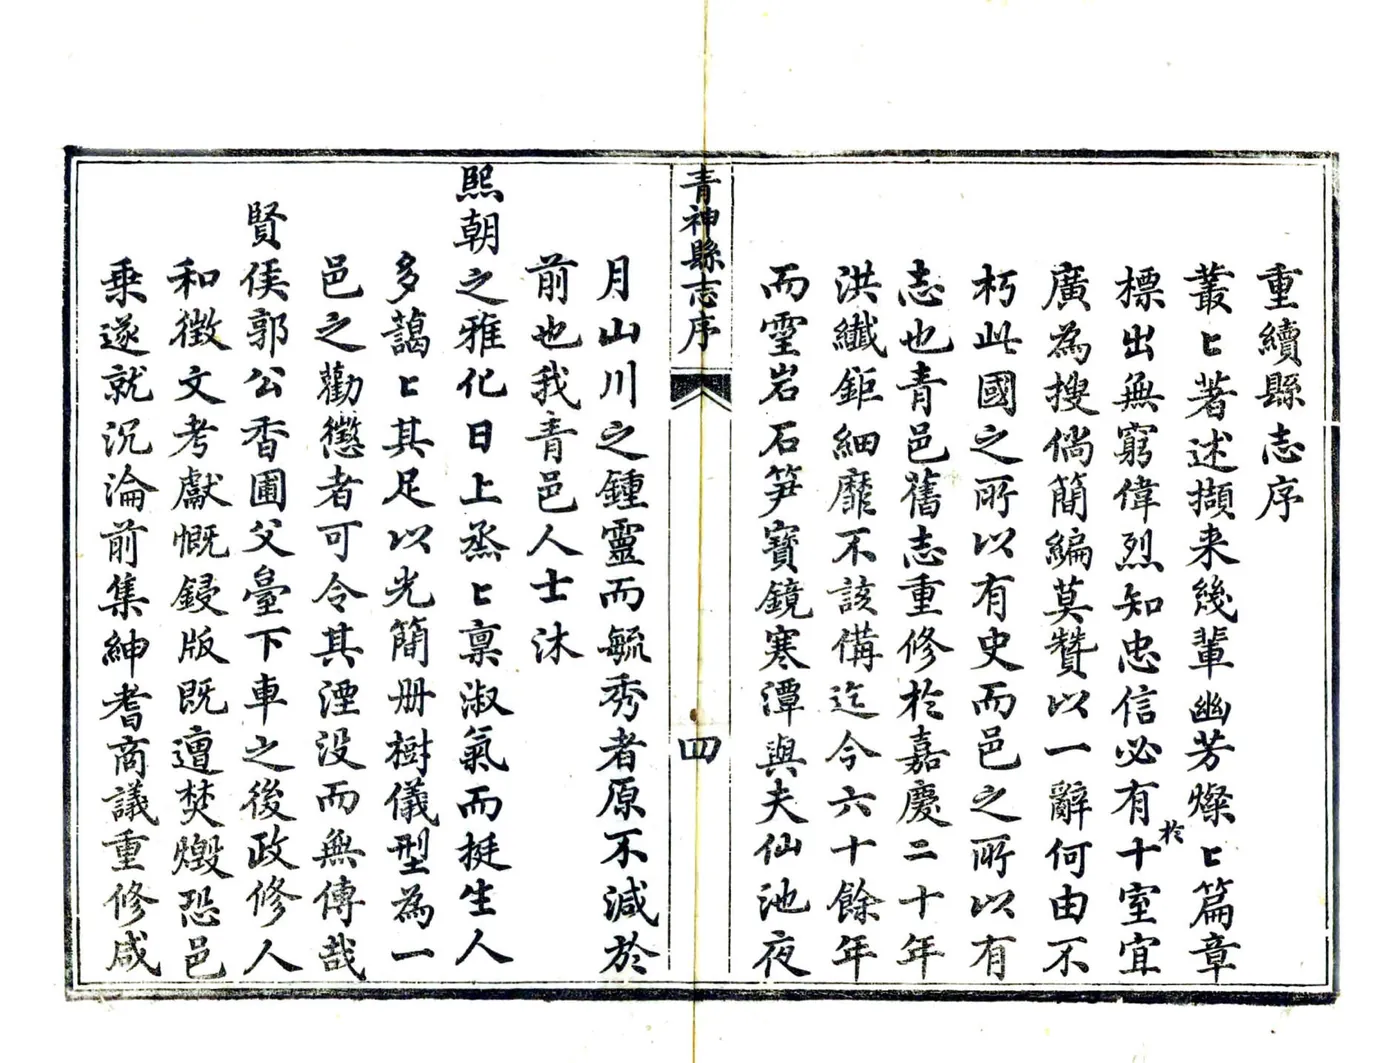 重續縣志序
叢〻著述擷来幾輩幽芳燦〻篇章
標出無窮偉烈知忠信必有於十室宜
廣為搜倘簡編莫贊以一辭何由不
朽此國之所以有史而邑之所以有
志也青邑舊志重修於嘉慶二十年
洪纖鉅細靡不該備迄今六十餘年
而霊岩石笋寶鏡寒潭與夫仙池夜
青神縣志序
四
月山川之鍾靈而毓秀者原不減於
前也我青邑人士沐
熙朝之雅化日上烝〻禀淑氣而挺生人
多藹〻其足以光簡册樹儀型為一
邑之勸懲者可令其湮没而無傳哉
賢侯郭公香圃父臺下車之後政修人
和徴文考獻慨鋟版既遭焚燬恐邑
乗遂就沉淪前集紳耆商議重修咸